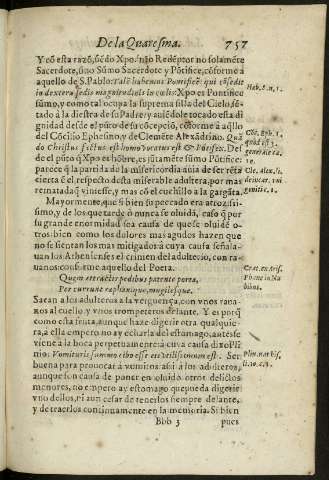 De la Quaresma. 757
Y cõ esta razõ, siẽdo Xpo. nño Redẽptor no solamẽte
Sacerdote, sino Sũmo Sacerdote y Põtifice, cõforme a
aquello de S. Pablo: Talẽ habemus Pontificẽ: qui cõsedit
in dextera sedis magnitudinis in cœlis: Xpo es Pontifice
Heb. 8. n. 1.
sũmo, y como tal ocupa la suprema silla del Cielo, sẽ-
tado à la diestra de su Padre: y auiẽdole tocado esta di
gnidad desde el pũto de su cõcepciõ, cõforme à aqllo
del Cõcilio Ephesino, y de Clemẽte Alexãdrino. Quã
do Christus factus est homo vocatus est & Põtifex. Des
de el pũto q Xpo es hõbre, es jũtamẽte sũmo Põtifice:
parece q la partida de la misericordia auia de ser tẽta
cierta ẽ el respecto desta miserable adultera, por mas
rematada q viniesse, y mas cõ el cuchillo a la gargãta.
Mayormente, que si bien su peccado era atrozissi-
simo, y de los que tarde ò nunca se oluidã, caso q por
su grande enormidad sea causa de que se oluidẽ o-
tros: bien como los dolores mas agudos hazen que
no se sientan los mas mitigados: à cuya causa señala-
uan los Athenienses el crimen del adulterio, con ra-
uanos: conforme aquello del Poeta.
Quem attractis pedibus patente porta,
Per currunt raphanique, mugilesque.
Sacan a los adulteros a la verguença, con vnos raua-
nos al cuello, y vnos trompeteros delante. Y es porq
como esta fruta, aunque haze digerir otra qualquie-
ra, a ella empero no ay echarla del estomago, antes se
viene à la boca perpetuamente: à cuya causa dixo Pli
nio: Vomituris summo cibo esse utilissimum est. Ser
buena para prouocar a vomitos: assi à los adulteros,
aunque son causa de poner en oluido otros delictos
menores, no empero ay estomago que pueda digerir
vno dellos, ni aun cesar de tenerlos siempre delante,
y de traerlos continuamente en la memoria. Si bien
Bbb 3 pues